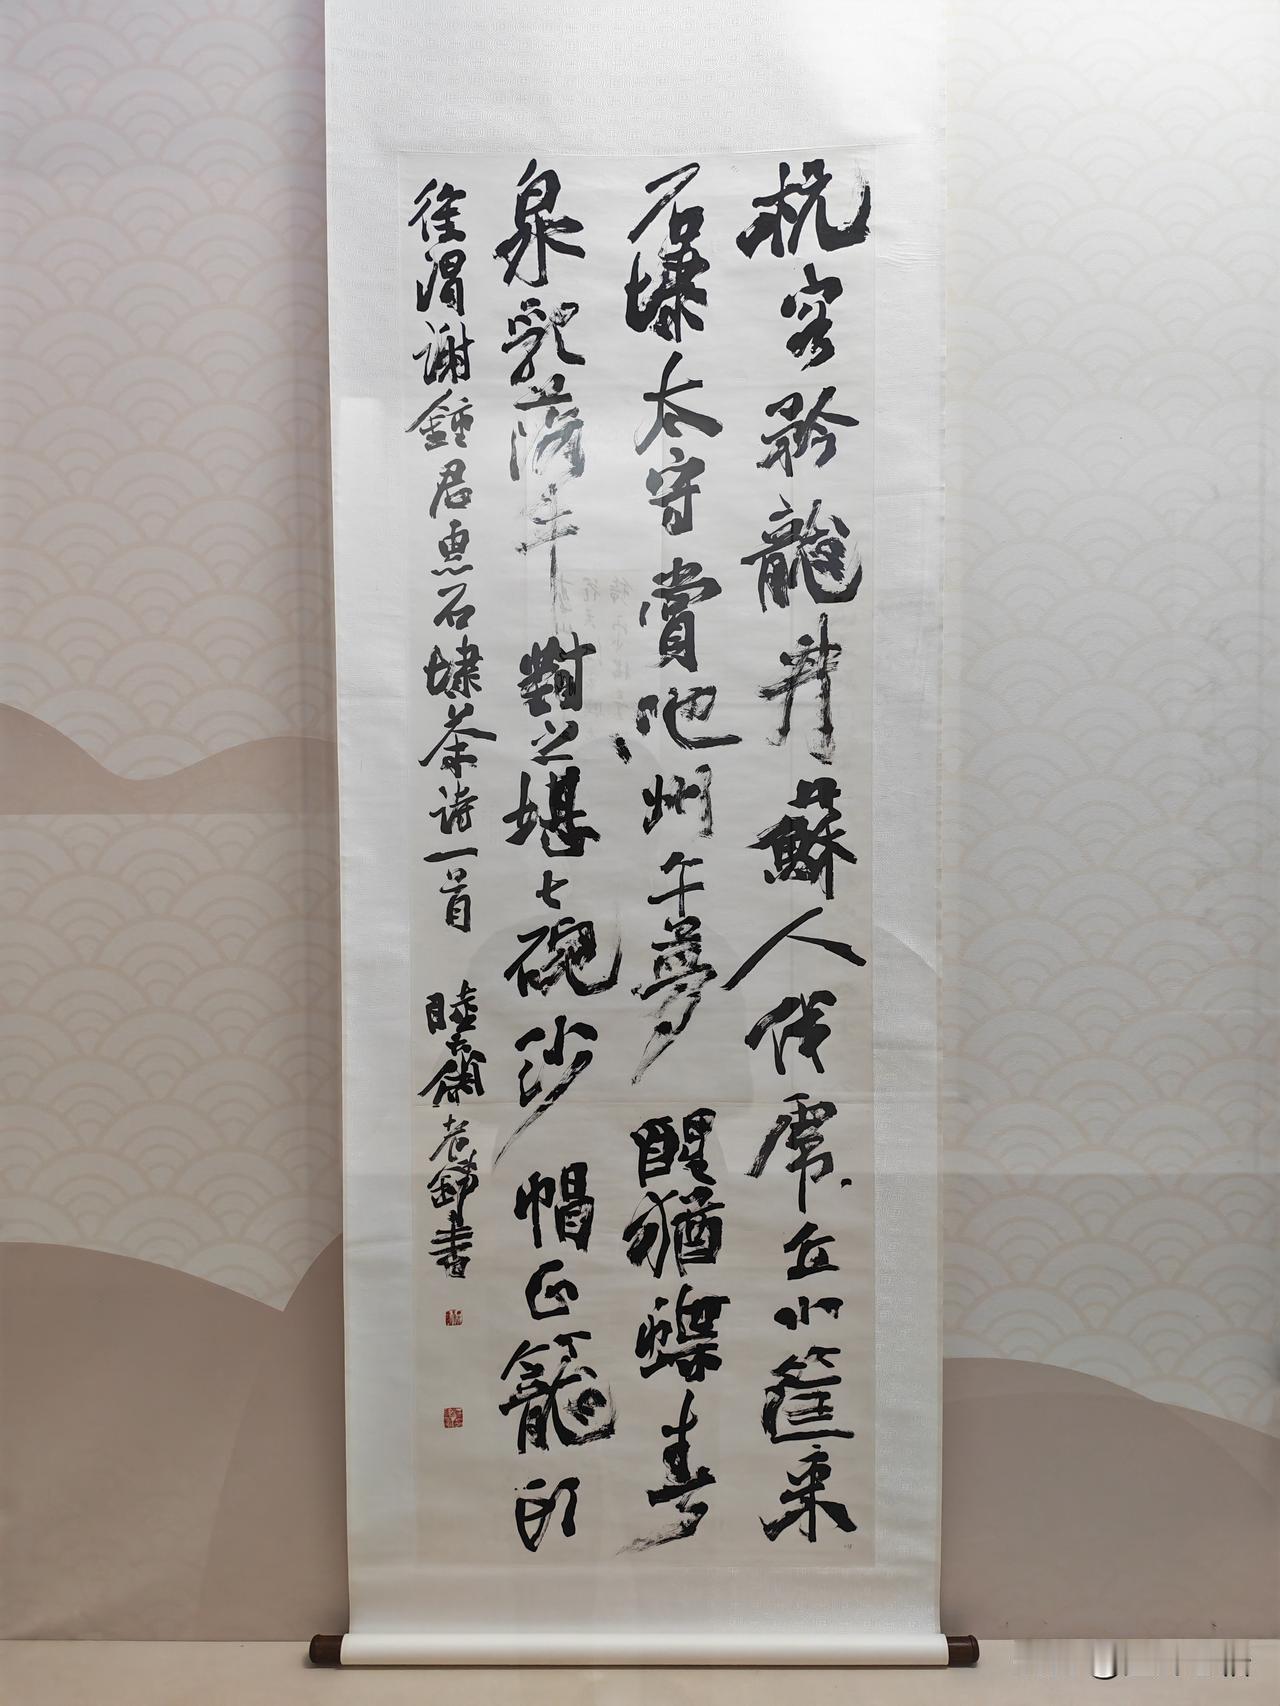 杭客矜龍井蘇人伐虎丘小筐來
石埭太守賞池州午夢醒猶蝶春
泉乳落牛對之堪七碗紗帽正籠頭
徐渭謝鍾君惠石埭茶詩一首 睦老書